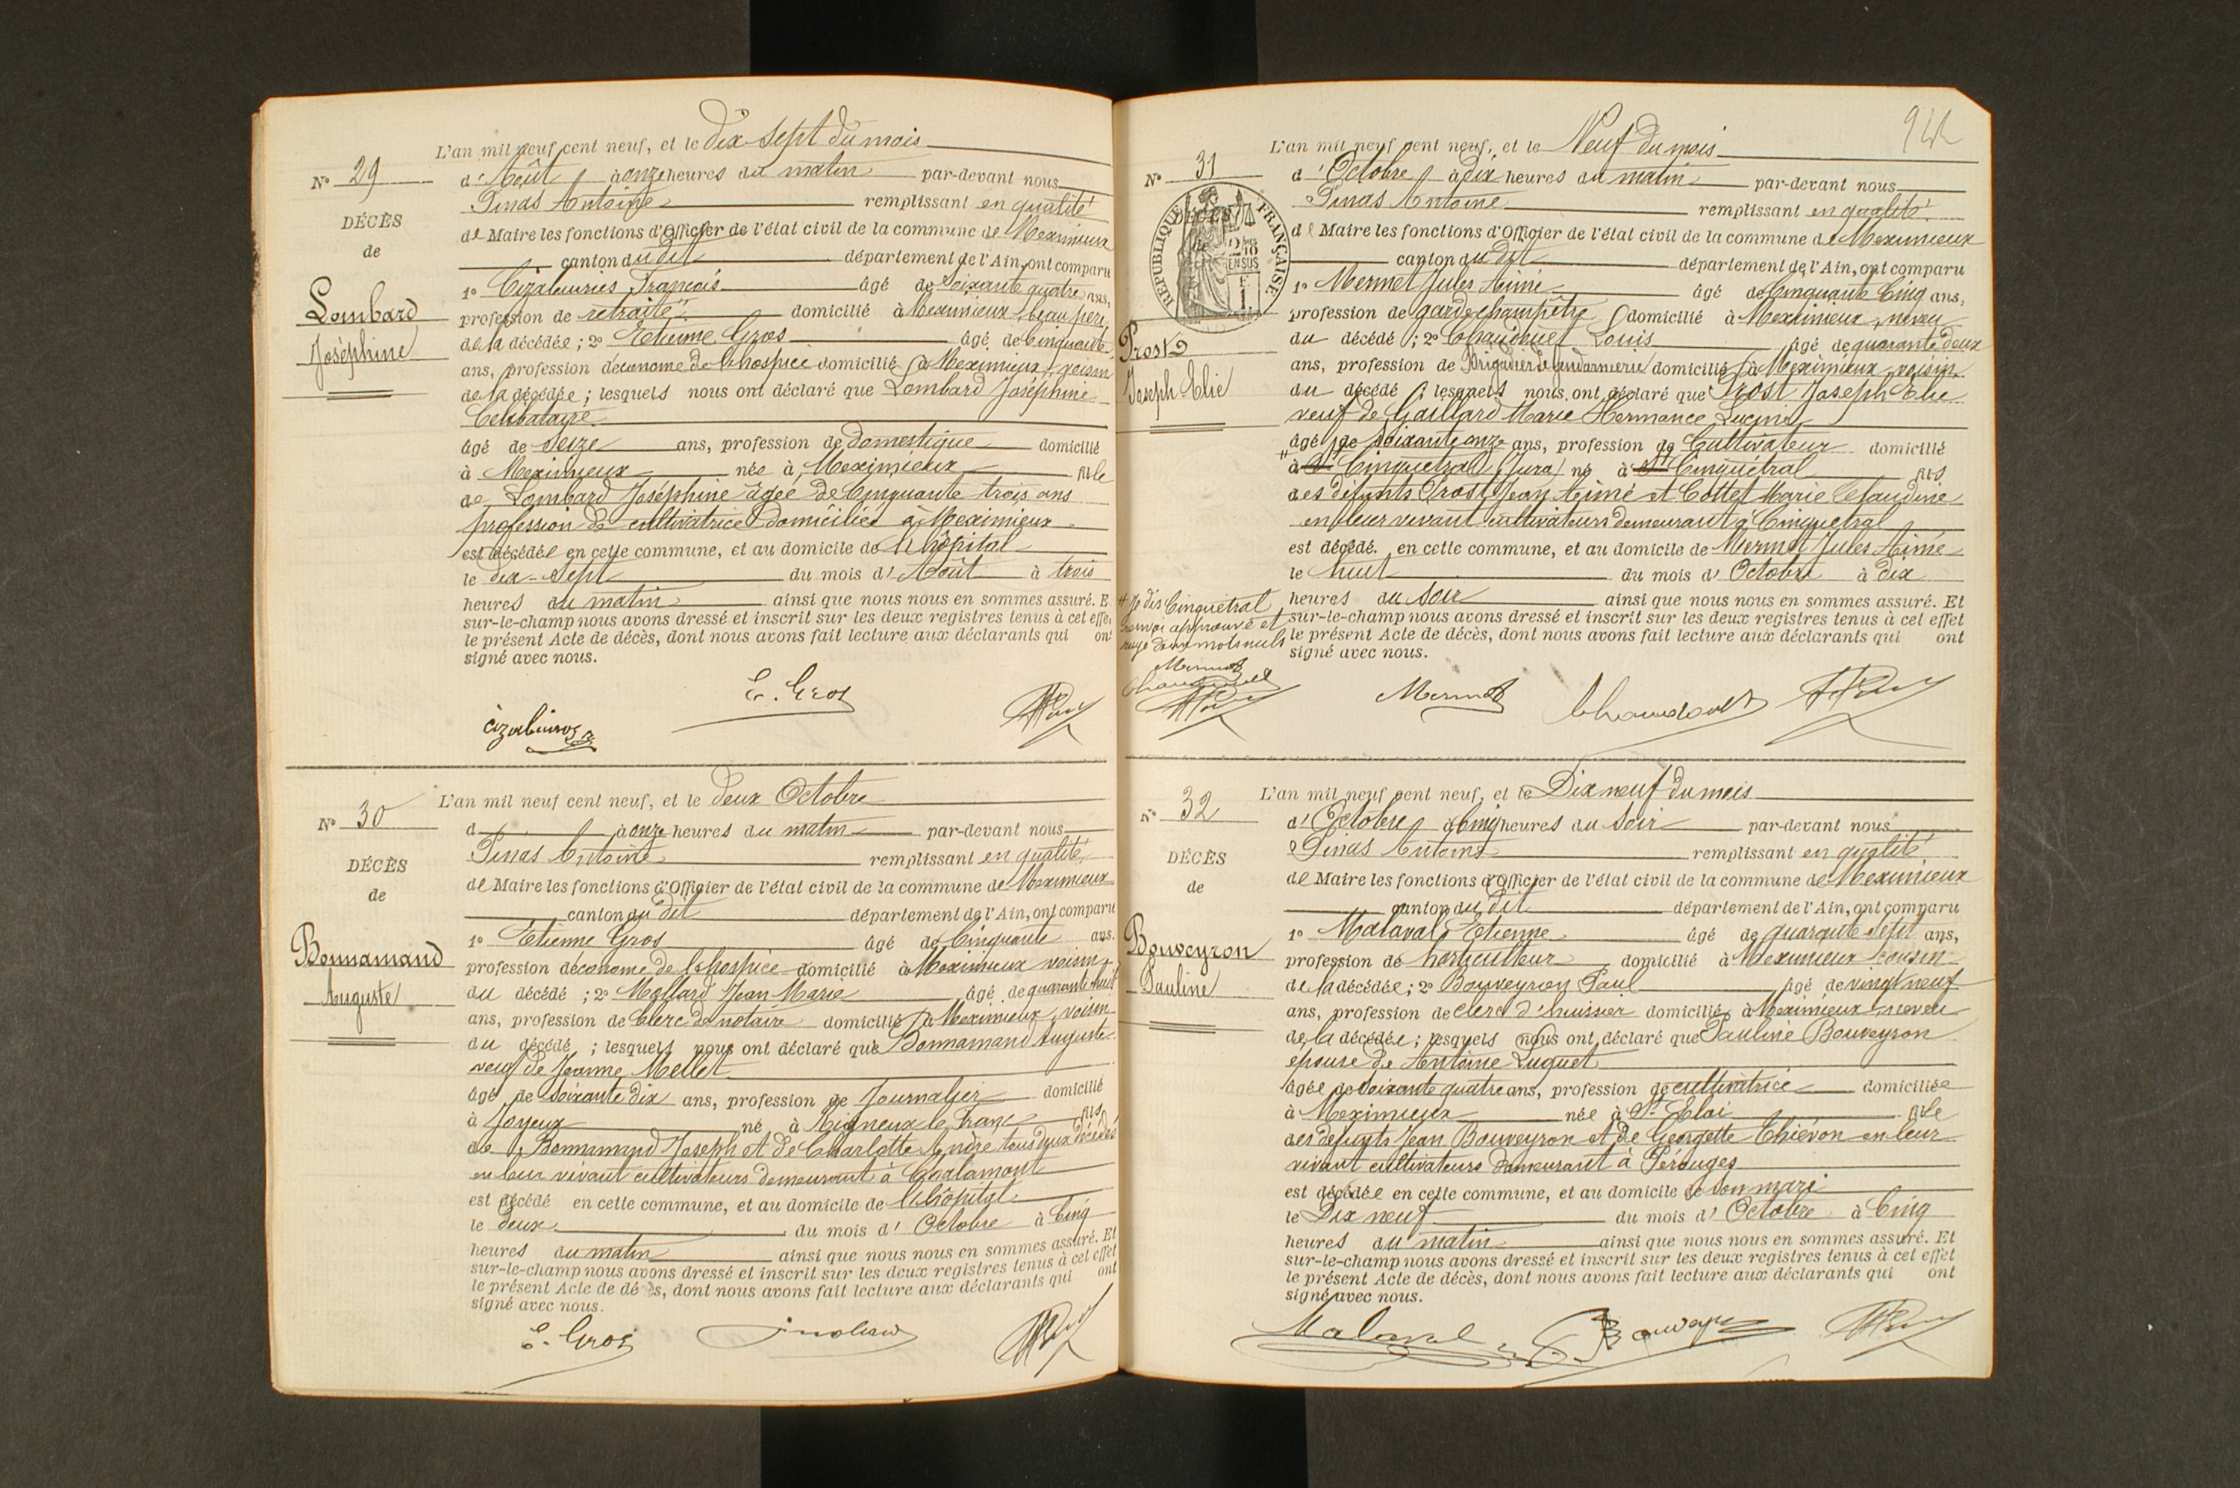 L'an mil neuf cent neuf, et le dix sept du mois
N° 29
d'Août à onze heures du matin par-devant nous
Pinas Antoine remplissant en qualité
DÉCÈS
de Maire les fonctions d'Officier de l'état civil de la commune de Meximieux
de
canton du dit département de l'Ain, ont comparu
1° François âgé de Soixante quatre ans,
Lombard
profession de retraité domicilié à Meximieux, beau père
Joséphine
de la décédée ; 2° Etienne Gros âgé de Cinquante
ans, profession d'économe de l'hospice domicilié à Meximieux voisin
de la décédée ; lesquels nous ont déclaré que Lombard Joséphine
Célibataire
âgé de seize ans, profession de domestique domicilié
à Meximieux née à Meximieux fille
de Lombard Joséphine âgée de Cinquante trois ans
profession de cultivatrice domiciliée à Meximieux
est décédée en cette commune, et au domicile de l'hôpital
le dix-sept du mois d'Août à trois
heures du matin ainsi que nous nous en sommes assuré. E
sur-le-champ nous avons dressé et inscrit sur les deux registres tenus à cet effet
le présent Acte de décès, dont nous avons fait lecture aux déclarants qui ont
signé avec nous.
E. Gros
L'an mil neuf cent neuf, et le deux Octobre
N° 30
d à onze heures du matin par-devant nous
Pinas Antoine remplissant en qualité
DÉCÈS
de Maire les fonctions d'Officier de l'état civil de la commune de Meximieux
de
canton du dit département de l'Ain, ont comparu
1° Etienne Gros âgé de Cinquante ans.
Bonnamand
profession d'économe de l'hospice domicilié à Meximieux voisin
Auguste
du décédé ; 2° Mollard Jean Marie âgé de quarante huit
ans, profession de Clerc de notaire domicilié à Meximieux, voisin
du décédé ; lesquels nous ont déclaré que Bonnamand Auguste
veuf de Jeanne Mellet
âgé de soixante dix ans, profession de Journalier domicilié
à Joyeux né à Rigneux le Franc fils
de Bonnamand Joseph et de Charlotte Andre tous deux décédés
en leur vivant cultivateurs demeurant à Chalamont
est décédé en cette commune, et au domicile de l'hôpital
le deux du mois d'Octobre à Cinq
heures du matin ainsi que nous nous en sommes assuré. Et
sur-le-champ nous avons dressé et inscrit sur les deux registres tenus à cet effet
le présent Acte de décès, dont nous avons fait lecture aux déclarants qui ont
signé avec nous.
E. Gros
L'an mil neuf cent neuf, et le Neuf du mois
N° 31
d'Octobre à dix heures du matin par-devant nous
Pinas Antoine remplissant en qualité
DÉCÈS
RÉPUBLIQUE FRANÇAISE
de Maire les fonctions d'Officier de l'état civil de la commune de Meximieux
canton du dit département de l'Ain, ont comparu
1° Mermet Jules Aimé âgé de Cinquante Cinq ans,
profession de garde champêtre domicilié à Meximieux, neveu
Prost
du décédé ; 2° Louis âgé de quarante deux
Joseph Elie
ans, profession de Brigadier de gendarmerie domicilié à Meximieux voisin
du décédé ; lesquels nous ont déclaré que Prost Joseph Elie
veuf de Gaillard Marie Hermance Lucine
âgé de soixante onze ans, profession de Cultivateur domicilié
à St Cinquétral (Jura) né à St Cinquétral fils
des défunts Prost Jean Aimé et Cottet Marie Claudine
en leur vivant cultivateurs demeurant à Cinquetral
est décédé en cette commune, et au domicile de Mermet Jules Aimé
le huit du mois d'Octobre à dix
heures du soir ainsi que nous nous en sommes assuré. Et
sur-le-champ nous avons dressé et inscrit sur les deux registres tenus à cet effet
le présent Acte de décès, dont nous avons fait lecture aux déclarants qui ont
signé avec nous.
Je dis Cinquetral
renvoi approuvé et
rayé deux mots nuls
Mermet
Mermet
L'an mil neuf cent neuf, et le Dix neuf du mois
N° 32
d'Octobre à Cinq heures du soir par-devant nous
Pinas Antoine remplissant en qualité
DÉCÈS
de Maire les fonctions d'Officier de l'état civil de la commune de Meximieux
de
canton du dit département de l'Ain, ont comparu
1° Malaval Etienne âgé de quarante sept ans,
Bouveyron
profession de horticulteur domicilié à Meximieux cousin
Pauline
de la décédée ; 2° Bouveyron Paul âgé de vingt neuf
ans, profession de clerc d'huissier domicilié à Meximieux neveu
de la décédée ; lesquels nous ont déclaré que Pauline Bouveyron
épouse de Antoine Luquet
âgée de soixante quatre ans, profession de cultivatrice domiciliée
à Meximieux née à St Eloi fille
des défunts Jean Bouveyron et de Georgette Thiévon en leur
vivant cultivateurs demeurant à Pérouges
est décédée en cette commune, et au domicile de son mari
le Dix neuf du mois d'Octobre à Cinq
heures du matin ainsi que nous nous en sommes assuré. Et
sur-le-champ nous avons dressé et inscrit sur les deux registres tenus à cet effet
le présent Acte de décès, dont nous avons fait lecture aux déclarants qui ont
signé avec nous.
Malaval